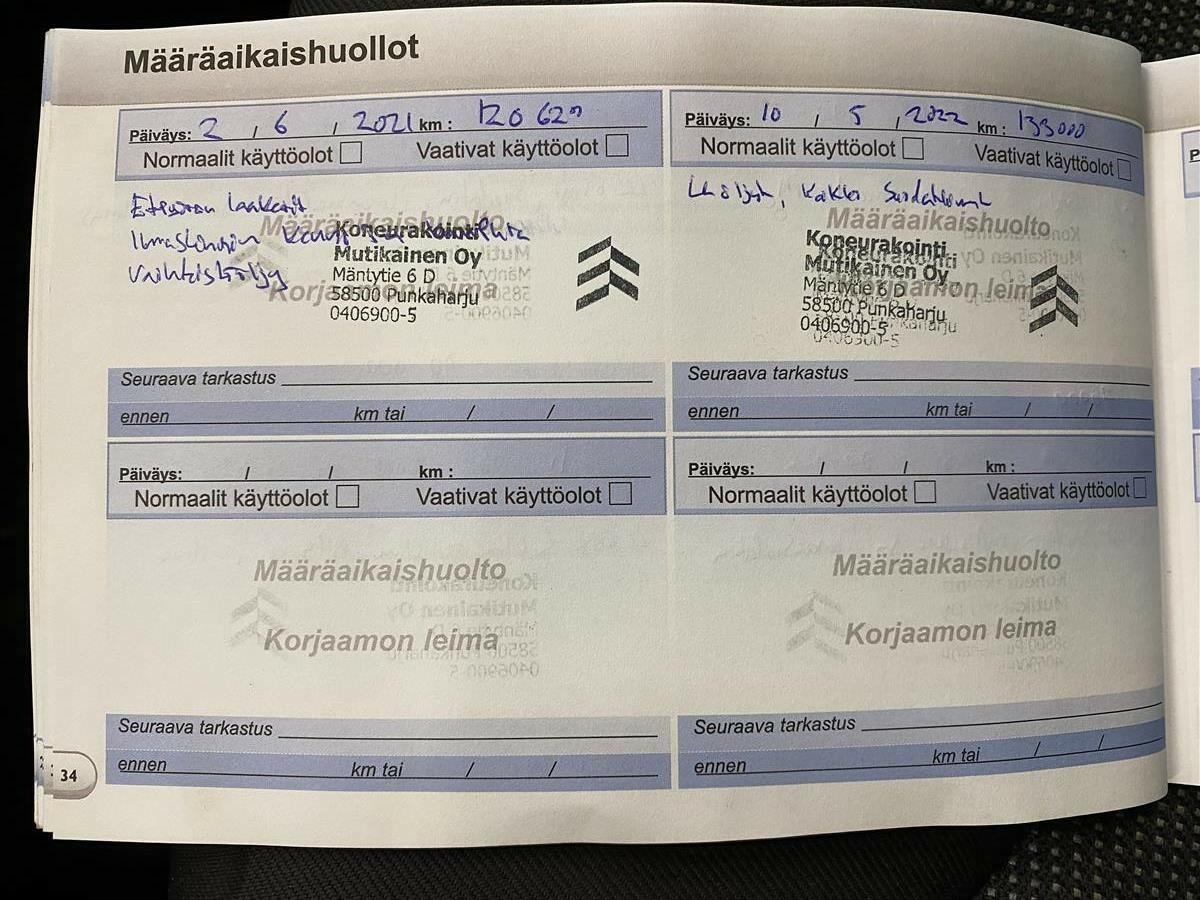 Määräaikaishuollot
Päiväys: 2 / 6 / 2021 km : 120 620
Normaalit käyttöolot Vaativat käyttöolot
laakerit
Ilmastoinnin
Vaihteistoöljy
Määräaikaishuolto
Korjaamon leima
Koneurakointi
Mutikainen Oy
Mäntytie 6 D
58500 Punkaharju
0406900-5
Seuraava tarkastus
ennen km tai / /
Päiväys: 10 / 5 / 2022 km : 133000
Normaalit käyttöolot Vaativat käyttöolot
Määräaikaishuolto
Korjaamon leima
Koneurakointi
Mutikainen Oy
Mäntytie 6 D
58500 Punkaharju
0406900-5
Seuraava tarkastus
ennen km tai / /
Päiväys: / / km :
Normaalit käyttöolot Vaativat käyttöolot
Määräaikaishuolto
Korjaamon leima
Seuraava tarkastus
ennen km tai / /
Päiväys: / / km :
Normaalit käyttöolot Vaativat käyttöolot
Määräaikaishuolto
Korjaamon leima
Seuraava tarkastus
ennen km tai / /
34